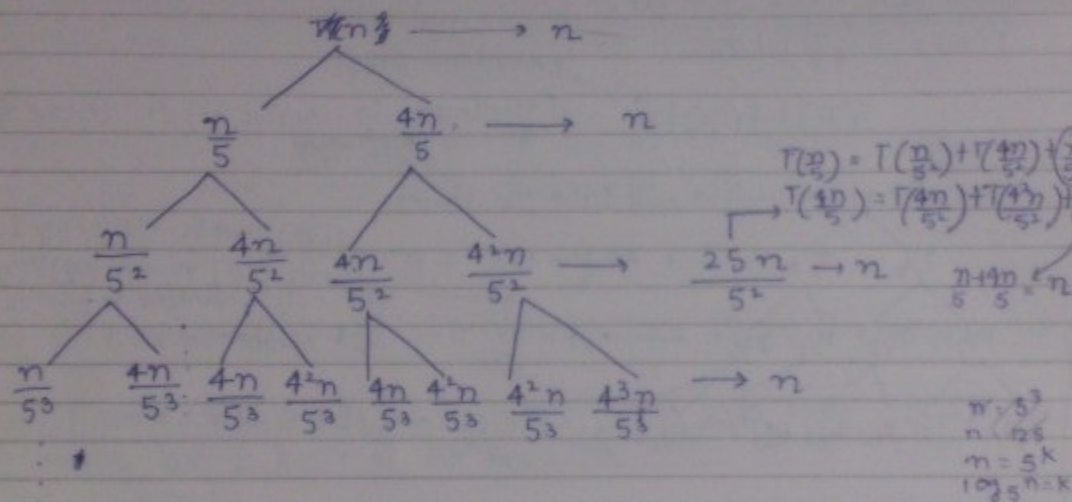 n → n
n/5 4n/5 → n
T(n/5) = T(n/5²) + T(4n/5²) +
T(4n/5) = T(4n/5²) + T(4²n/5²) +
n/5² 4n/5² 4n/5² 4²n/5² → 25n/5² → n
n/5 + 4n/5 = n
n/5³ 4n/5³ 4n/5³ 4²n/5³ 4n/5³ 4²n/5³ 4²n/5³ 4³n/5³ → n
n = 5³
n = 125
n = 5ᵏ
log₅n = k